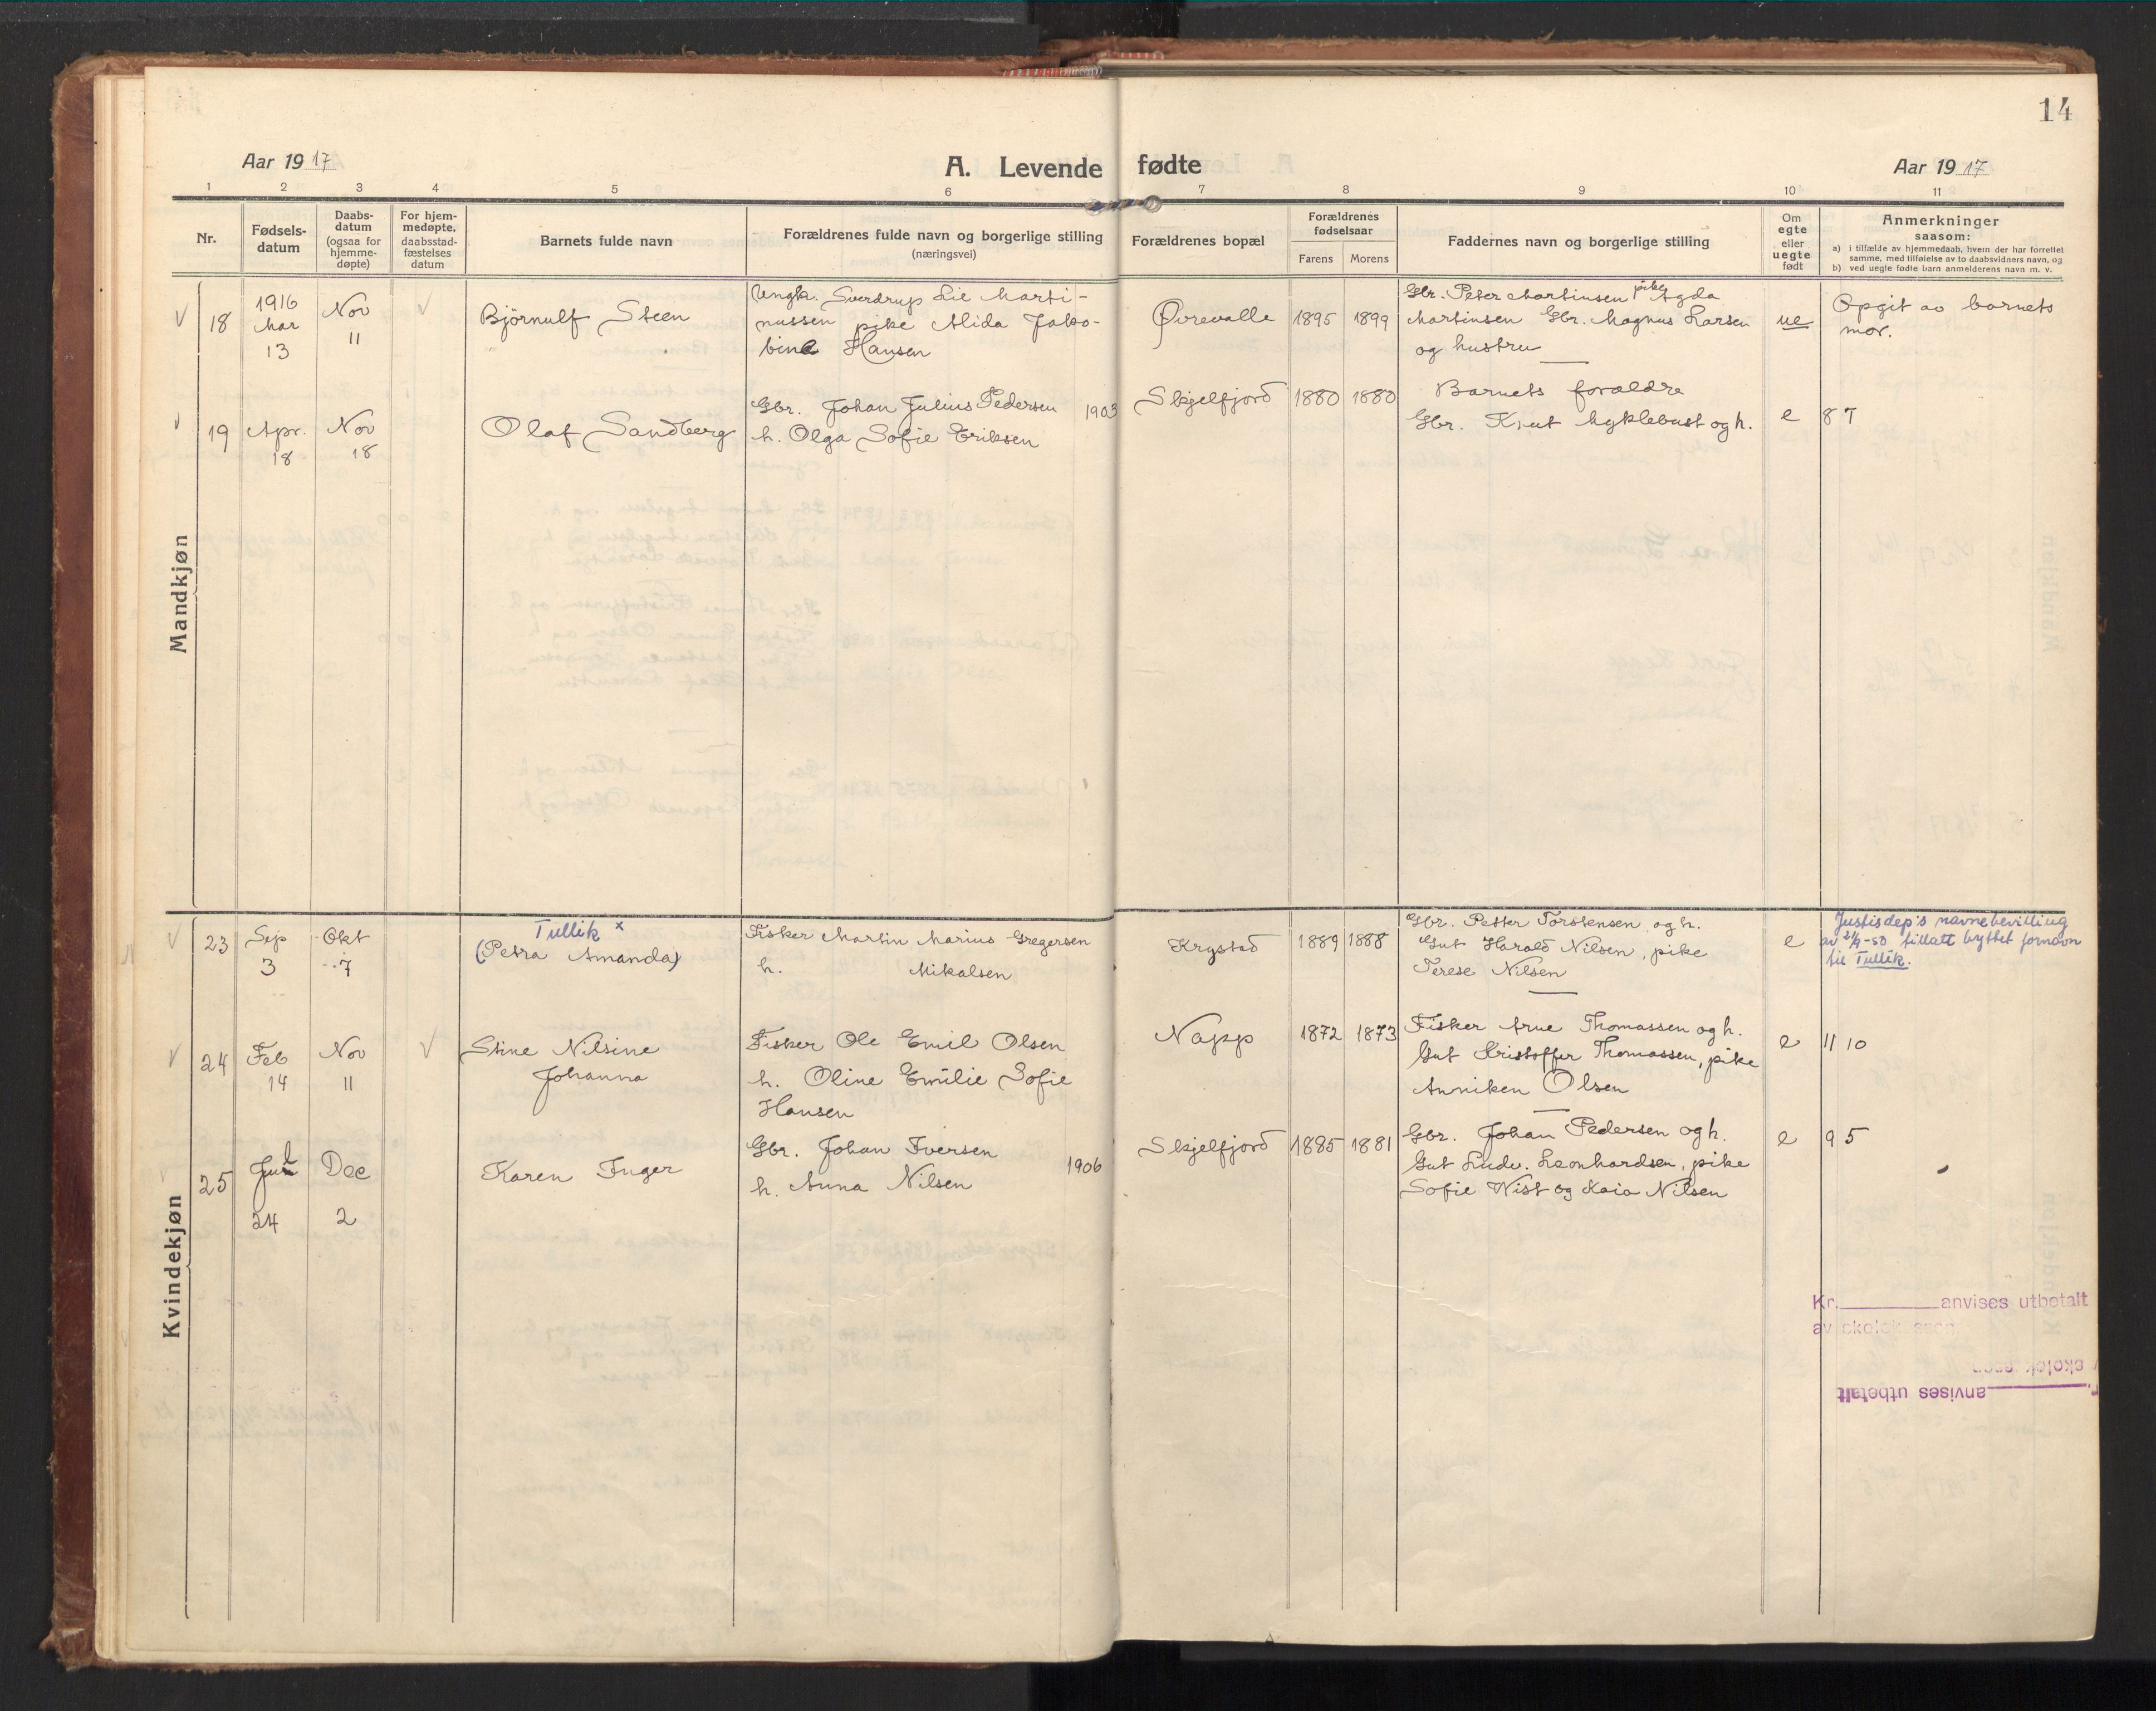 14
Aar 1917
A. Levende fødte
Aar 1917
1 2 3 4 5 6 7 8 9 10 11
Nr.
Fødsels-
datum
Daabs-
datum
(ogsaa for
hjemme-
døpte)
For hjem-
medøpte,
daabsstad-
fæstelses
datum
Barnets fulde navn
Forældrenes fulde navn og borgerlige stilling
(næringsvei)
Forældrenes bopæl
Forældrenes
fødselsaar
Farens Morens
Faddernes navn og borgerlige stilling
Om
egte
eller
uegte
født
Anmerkninger
saasom:
a) i tilfælde av hjemmedaab, hvem der har forrettet
samme, med tilføielse av to daabsvidners navn, og
b) ved uegte fødte barn anmelderens navn m. v.
Mandkjøn
18
1916
Mar
13
Nov
11
Björnulf Steen
Ungk. Sverdrup Lie Marti-
nussen pike Alida Jako-
bine Hansen
Övrevalle
1895 1899
Gbr. Peter Martinsen pike Agda
Martinsen Gbr. Magnus Larsen
og hustru
ue
Opgit av barnets
mor.
19
Apr.
18
Nov
18
Olaf Sandberg
Gbr. Johan Julius Pedersen 1903
h. Olga Sofie Eriksen
Skjelfjord
1880 1880
Barnets forældre
Gbr. Knut Myklebust og h.
e
8 7
Kvindekjøn
23
Sep
3
Okt
7
Tullik x
(Petra Amanda)
Fisker Martin Marius Gregersen
h. Mikalsen
Krystad
1889 1888
Gbr. Petter Torstensen og h.
Gut Harald Nilsen, pike
Terese Nilsen
e
Justisdep's navnebevilling
av 21/9-50 tillatt byttet fornavn
til Tullik.
24
Feb
14
Nov
11
Stine Nilsine
Johanna
Fisker Ole Emil Olsen
h. Oline Emilie Sofie
Hansen
Napp
1872 1873
Fisker Arne Thomassen og h.
Gut Kristoffer Thomassen, pike
Anniken Olsen
e
11 10
25
Jul
24
Dec
2
Karen Inger
Gbr. Johan Iversen
1906
h. Anna Nilsen
Skjelfjord
1885 1881
Gbr. Johan Pedersen og h.
Gut Ludv. Leonhardsen, pike
Sofie Wist og Kaia Nilsen
e
9 5
Kr. anvises utbetalt
av skolekassen
anvises utbetalt